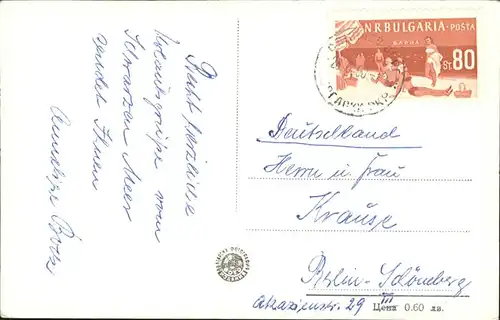 Recht herzliche
Urlaubsgrüße vom
Schwarzen Meer
sendet Ihnen
Anneliese
N.R BULGARIA - POŠTA
VARNA
ST. 80
Deutschland
Herrn u. Frau
Krause
Berlin-Schöneberg
Akazienstr. 29 III
Цена 0.60 лв.